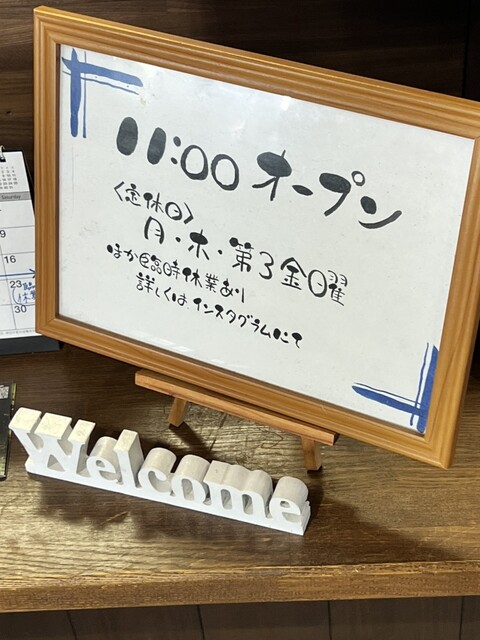 11:00 オープン
〈定休日〉
月・木・第3金曜
ほか臨時休業あり
詳しくは、インスタグラムにて
Welcome
Saturday
9
16
23
30